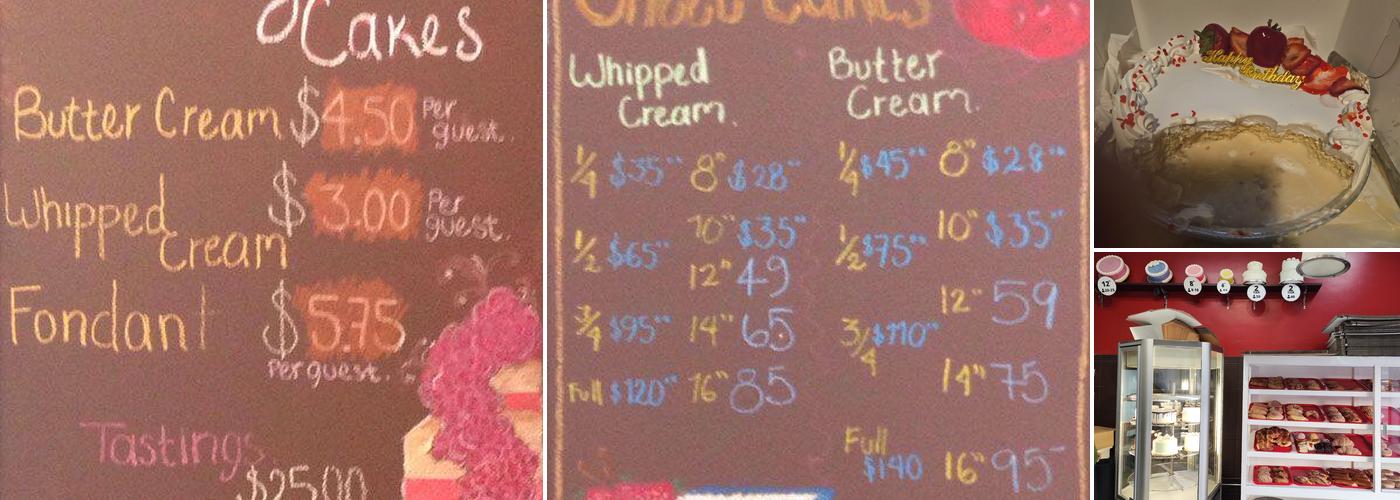 Cakes
Butter Cream $4.50 Per guest.
Whipped Cream $3.00 Per guest.
Fondant $5.75 Per guest.
Tastings
$25.00
Whipped Cream.
1/4 $35" 8" $28"
10" $35"
1/2 $65"
12" 49
3/4 $95" 14" 65
Full $120" 16" 85
Butter Cream.
1/4 $45" 8" $28"
1/2 $75" 10" $35"
12" 59
3/4 $110"
14" 75
Full $140 16" 95
Happy
Birthday
12"
8"
6"
2
2